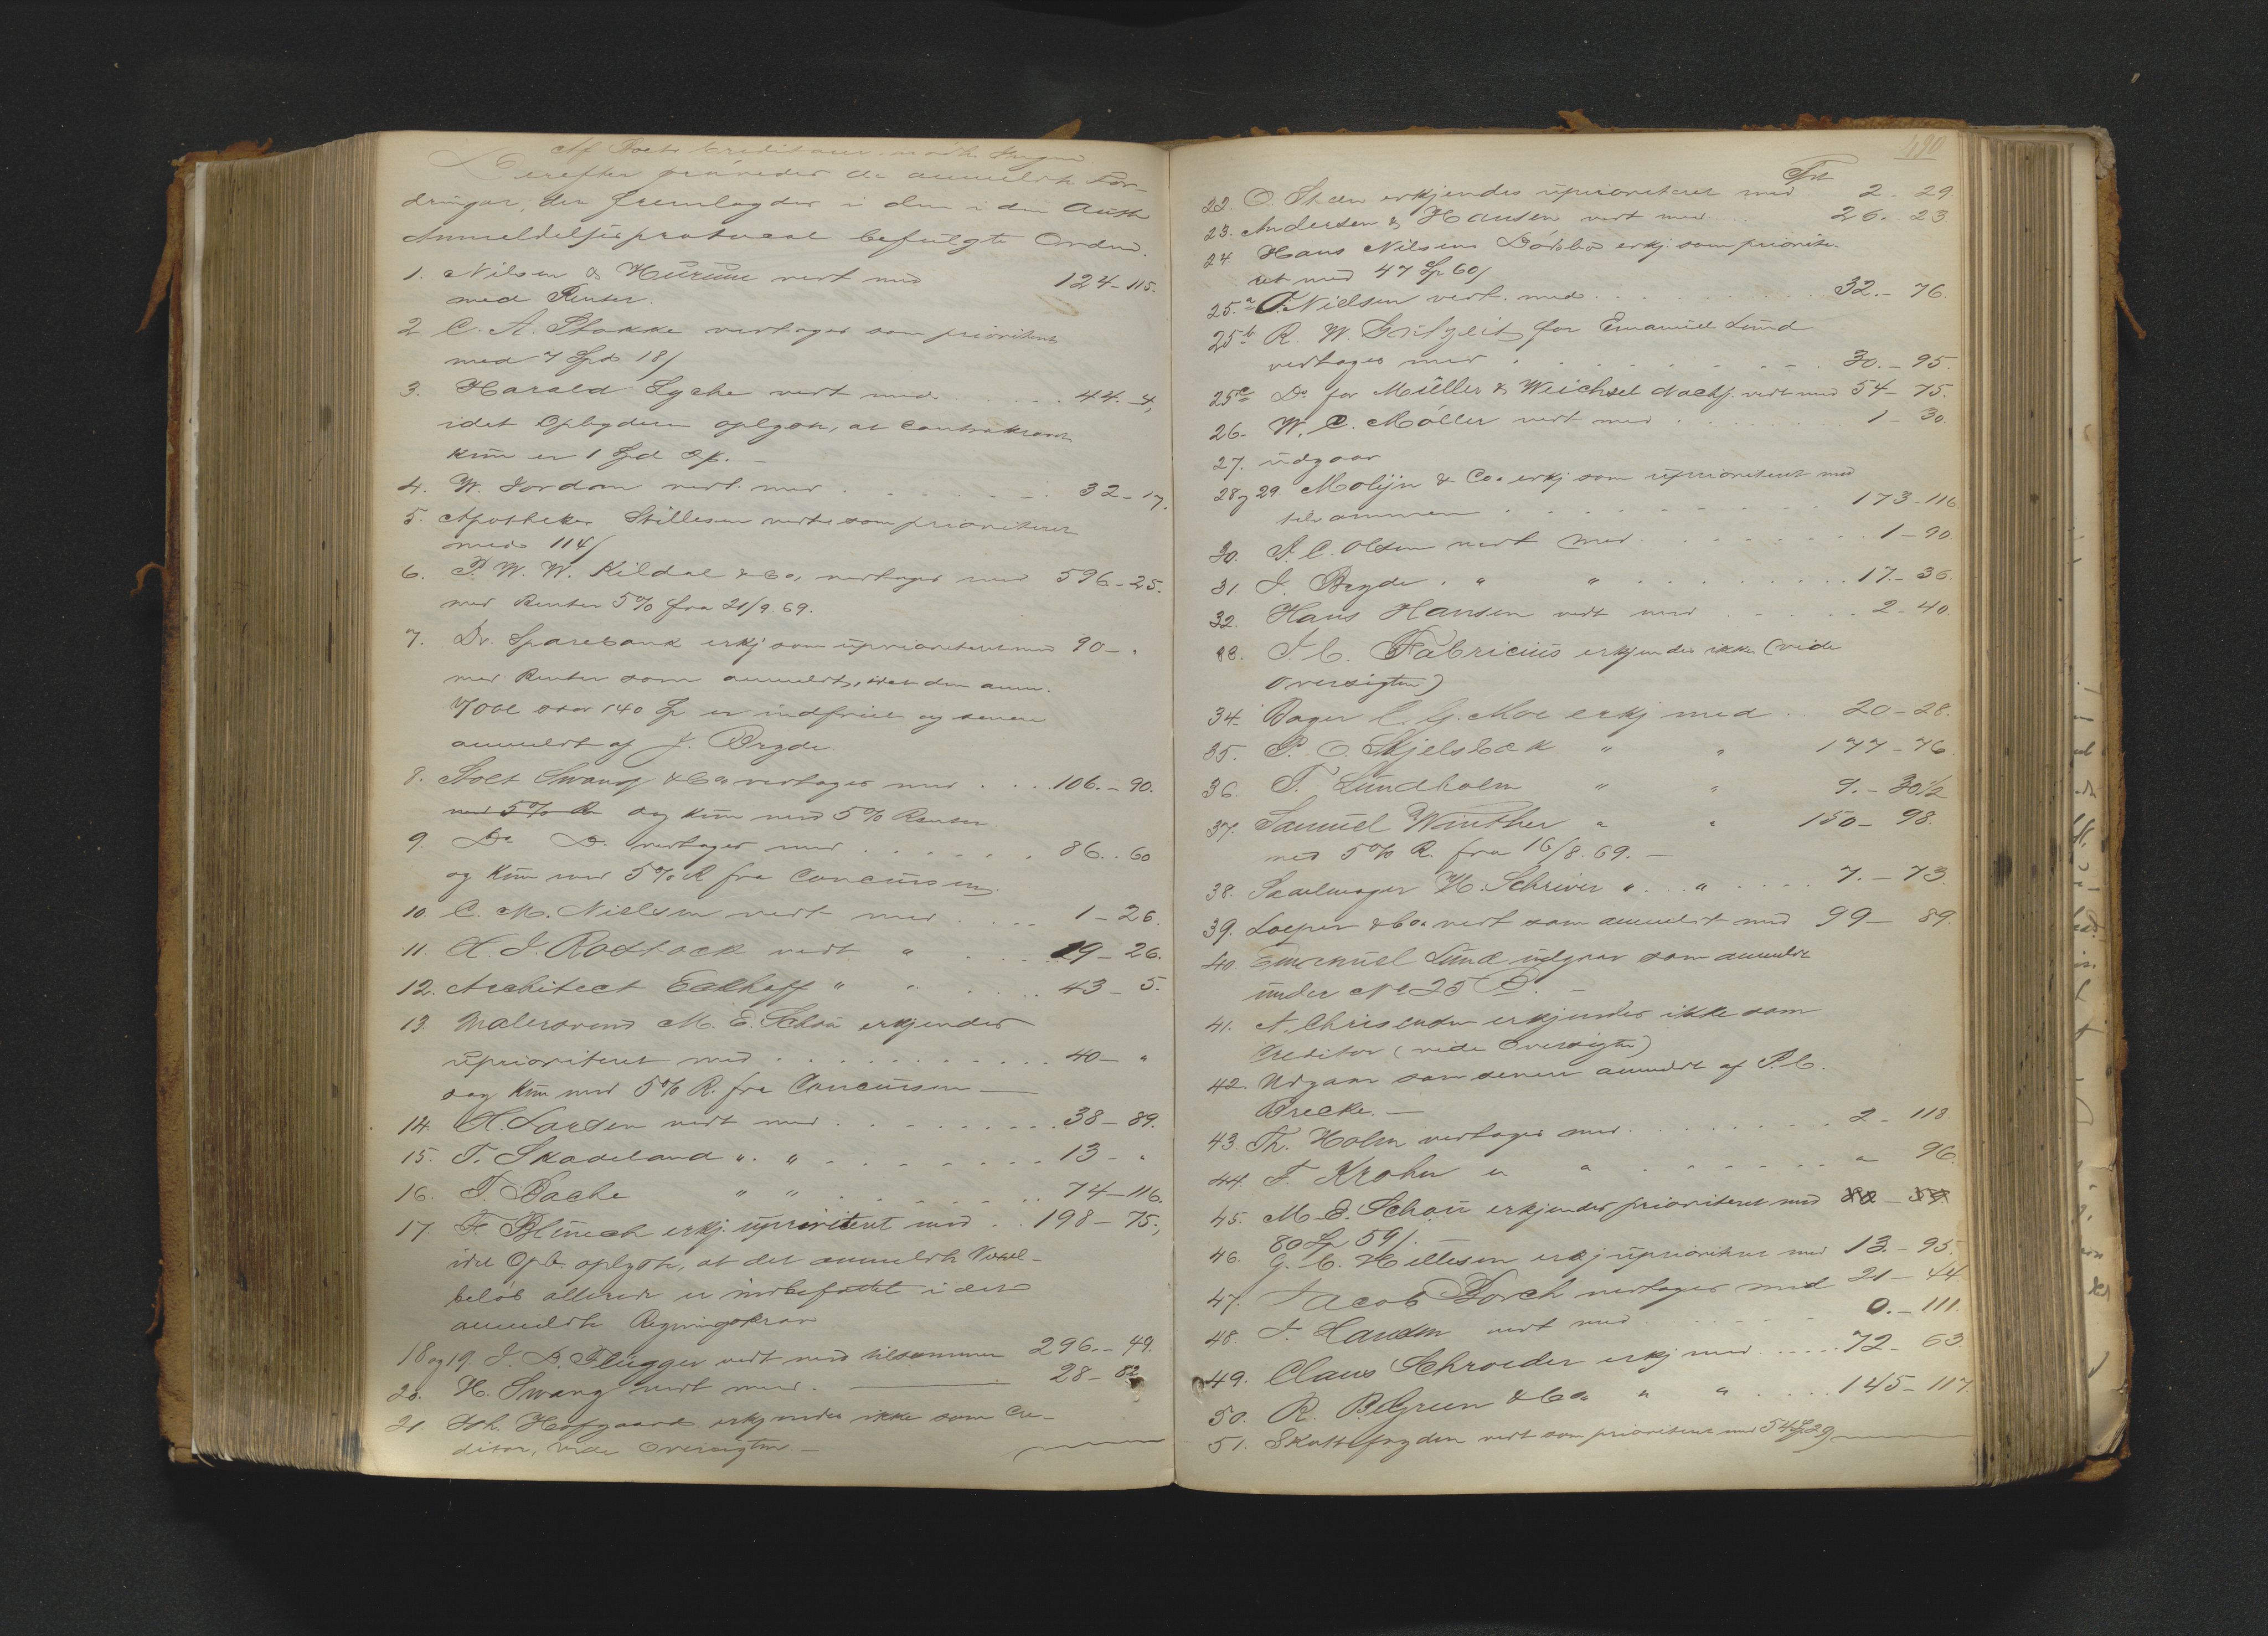 Af Boets Creditorer mødte Ingen.
Derefter prøvedes de anmeldte For-
dringer, der fremlagdes i den i den
Anmeldelsesprotocol befulgte Orden.
1. Nilsen & Hurum vedt med 124-115.
med Renter.
2. C. A. Stokke vedtages som prioriteret
med 7 Spd 18/
3. Harald Lyche vedt med 44.-4,
idet Opbyderen oplyste, at Contrakraver
kun er 1 Spd 2/.
4. W. Jordan vedt. med 32-17.
5. Apotheker Stillesen vedt. som prioriteret
med 114/
6. P. W. W. Kildal & Co. vedtages med 596-25.
med Renter 5% fra 21/9.69.
7. Dr. Sparebank erkj som uprioriteret med 90-"
med Renter som anmeldt, idet den anm.
Vexel stor 140 Sp er indfriet og senere
anmeldt af J. Bryde.
8. Stolt Swang & Co vedtages med 106.-90.
med 5% R og kun med 5% Renter
9. Do Do vedtages med 86..60
og kun med 5% R fra Concursen.
10. C. M. Nielsen vedt med 1-26.
11. H. J. Rostock vedt " 19-26.
12. Architect Eckhoff " " 43-5.
13. Malersvend M. E. Schou erkjendes
uprioriteret med 40-"
og kun med 5% R. fra Concursen
14. H. Larsen vedt med 38-89.
15. T. Skadeland " " 13-"
16. T. Bache " " 74-116.
17. F. Blunck erkj. uprioriteret med 198-75.,
idet Opb. oplyste, at det anmeldte Vexel-
beløb allerede er indbefattet i det
anmeldte Regningskrav
18 og 19. J. D. Flügger vedt med tilsammen 296.-49.
20. H. Swang vedt med. 28-82
21. Joh. Hofgaard erkjendes ikke som Cre-
ditor, vide Oversigten.-
490
Trt
22. O. Steen erkjendes uprioriteret med 2-29.
23. Andersen & Hansen vedt med 26..23
24. Hans Nilsens Dødsbo erkj. som priorite-
ret med 47 Sp 60/
25.a T. Nielsen vedt. med 32.-76.
25b R. W. Gritzeit for Emanuel Lund
vedtages med 30.-95.
25c Do for Müller & Weichsel Nachf. vedt med 54-75.
26. W. C. Möller vedt med 1-30.
27. udgaar
28 og 29. Molijn & Co. erkj som uprioriteret med
tilsammen 173-116
30. A. C. Olsen vedt med 1-90
31. J. Bryde. " " 17.-36.
32. Hans Hansen vedt med 2-40.
33. J. C. Fabricius erkjendes ikke (vide
Oversigten)
34. Bager C. G. Moe erkj med 20-28.
35. P. O. Skjelsbæk " " 177-76
36. T. Lundholm " " 9.-30½
37. Samuel Winther " " 150-98.
med 5% R. fra 16/8.69.-
38. Sadelmager H. Schriver " " 7.-73.
39. Loeper & Co. vedt som anmeldt med 99-89.
40. Emanuel Lund udgaar som anmeldt
under No 25 B.-
41. A. Christensen erkjendes ikke som
Creditor (vide Oversigten)
42. Udgaar som senere anmeldt af P. C.
Brecke.-
43. Th. Holm vedtages med 2-118
44. F. Krohn " " " 96.
45. M. E. Schou erkjendes prioriteret med 80-59.
80 Sp 59/.
46. G. C. Hillesen erkj uprioriteret med 13.-95.
47. Jacob Borch vedtages med 21-44
48. J. Hansen vedt med 0.-111.
49. Claus Schroeder erkj med 72-63.
50. R. B. Green & Co " " 145-117.
51. Skattefogden vedt som prioriteret med 54 Sp 29